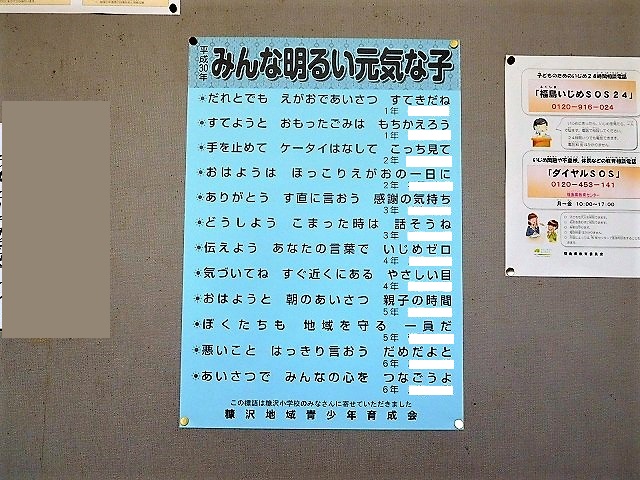 平成30年
みんな明るい元気な子
☀だれとでも えがおであいさつ すてきだね
1年
☀すてようと おもったごみは もちかえろう
1年
☀手を止めて ケータイはなして こっち見て
2年
☀おはようは ほっこりえがおの一日に
2年
☀ありがとう す直に言おう 感謝の気持ち
3年
☀どうしよう こまった時は 話そうね
3年
☀伝えよう あなたの言葉で いじめゼロ
4年
☀気づいてね すぐ近くにある やさしい目
4年
☀おはようと 朝のあいさつ 親子の時間
5年
☀ぼくたちも 地域を守る 一員だ
5年
☀悪いこと はっきり言おう だめだよと
6年
☀あいさつで みんなの心を つなごうよ
6年
この標語は糠沢小学校のみなさんに寄せていただきました
糠沢地域青少年育成会
子どものためのいじめ24時間相談電話
「福島いじめSOS24」
0120-916-024
いじめ問題や不登校、体罰などの教育相談電話
「ダイヤルSOS」
0120-453-141
月~金 10:00~17:00
福島県教育委員会